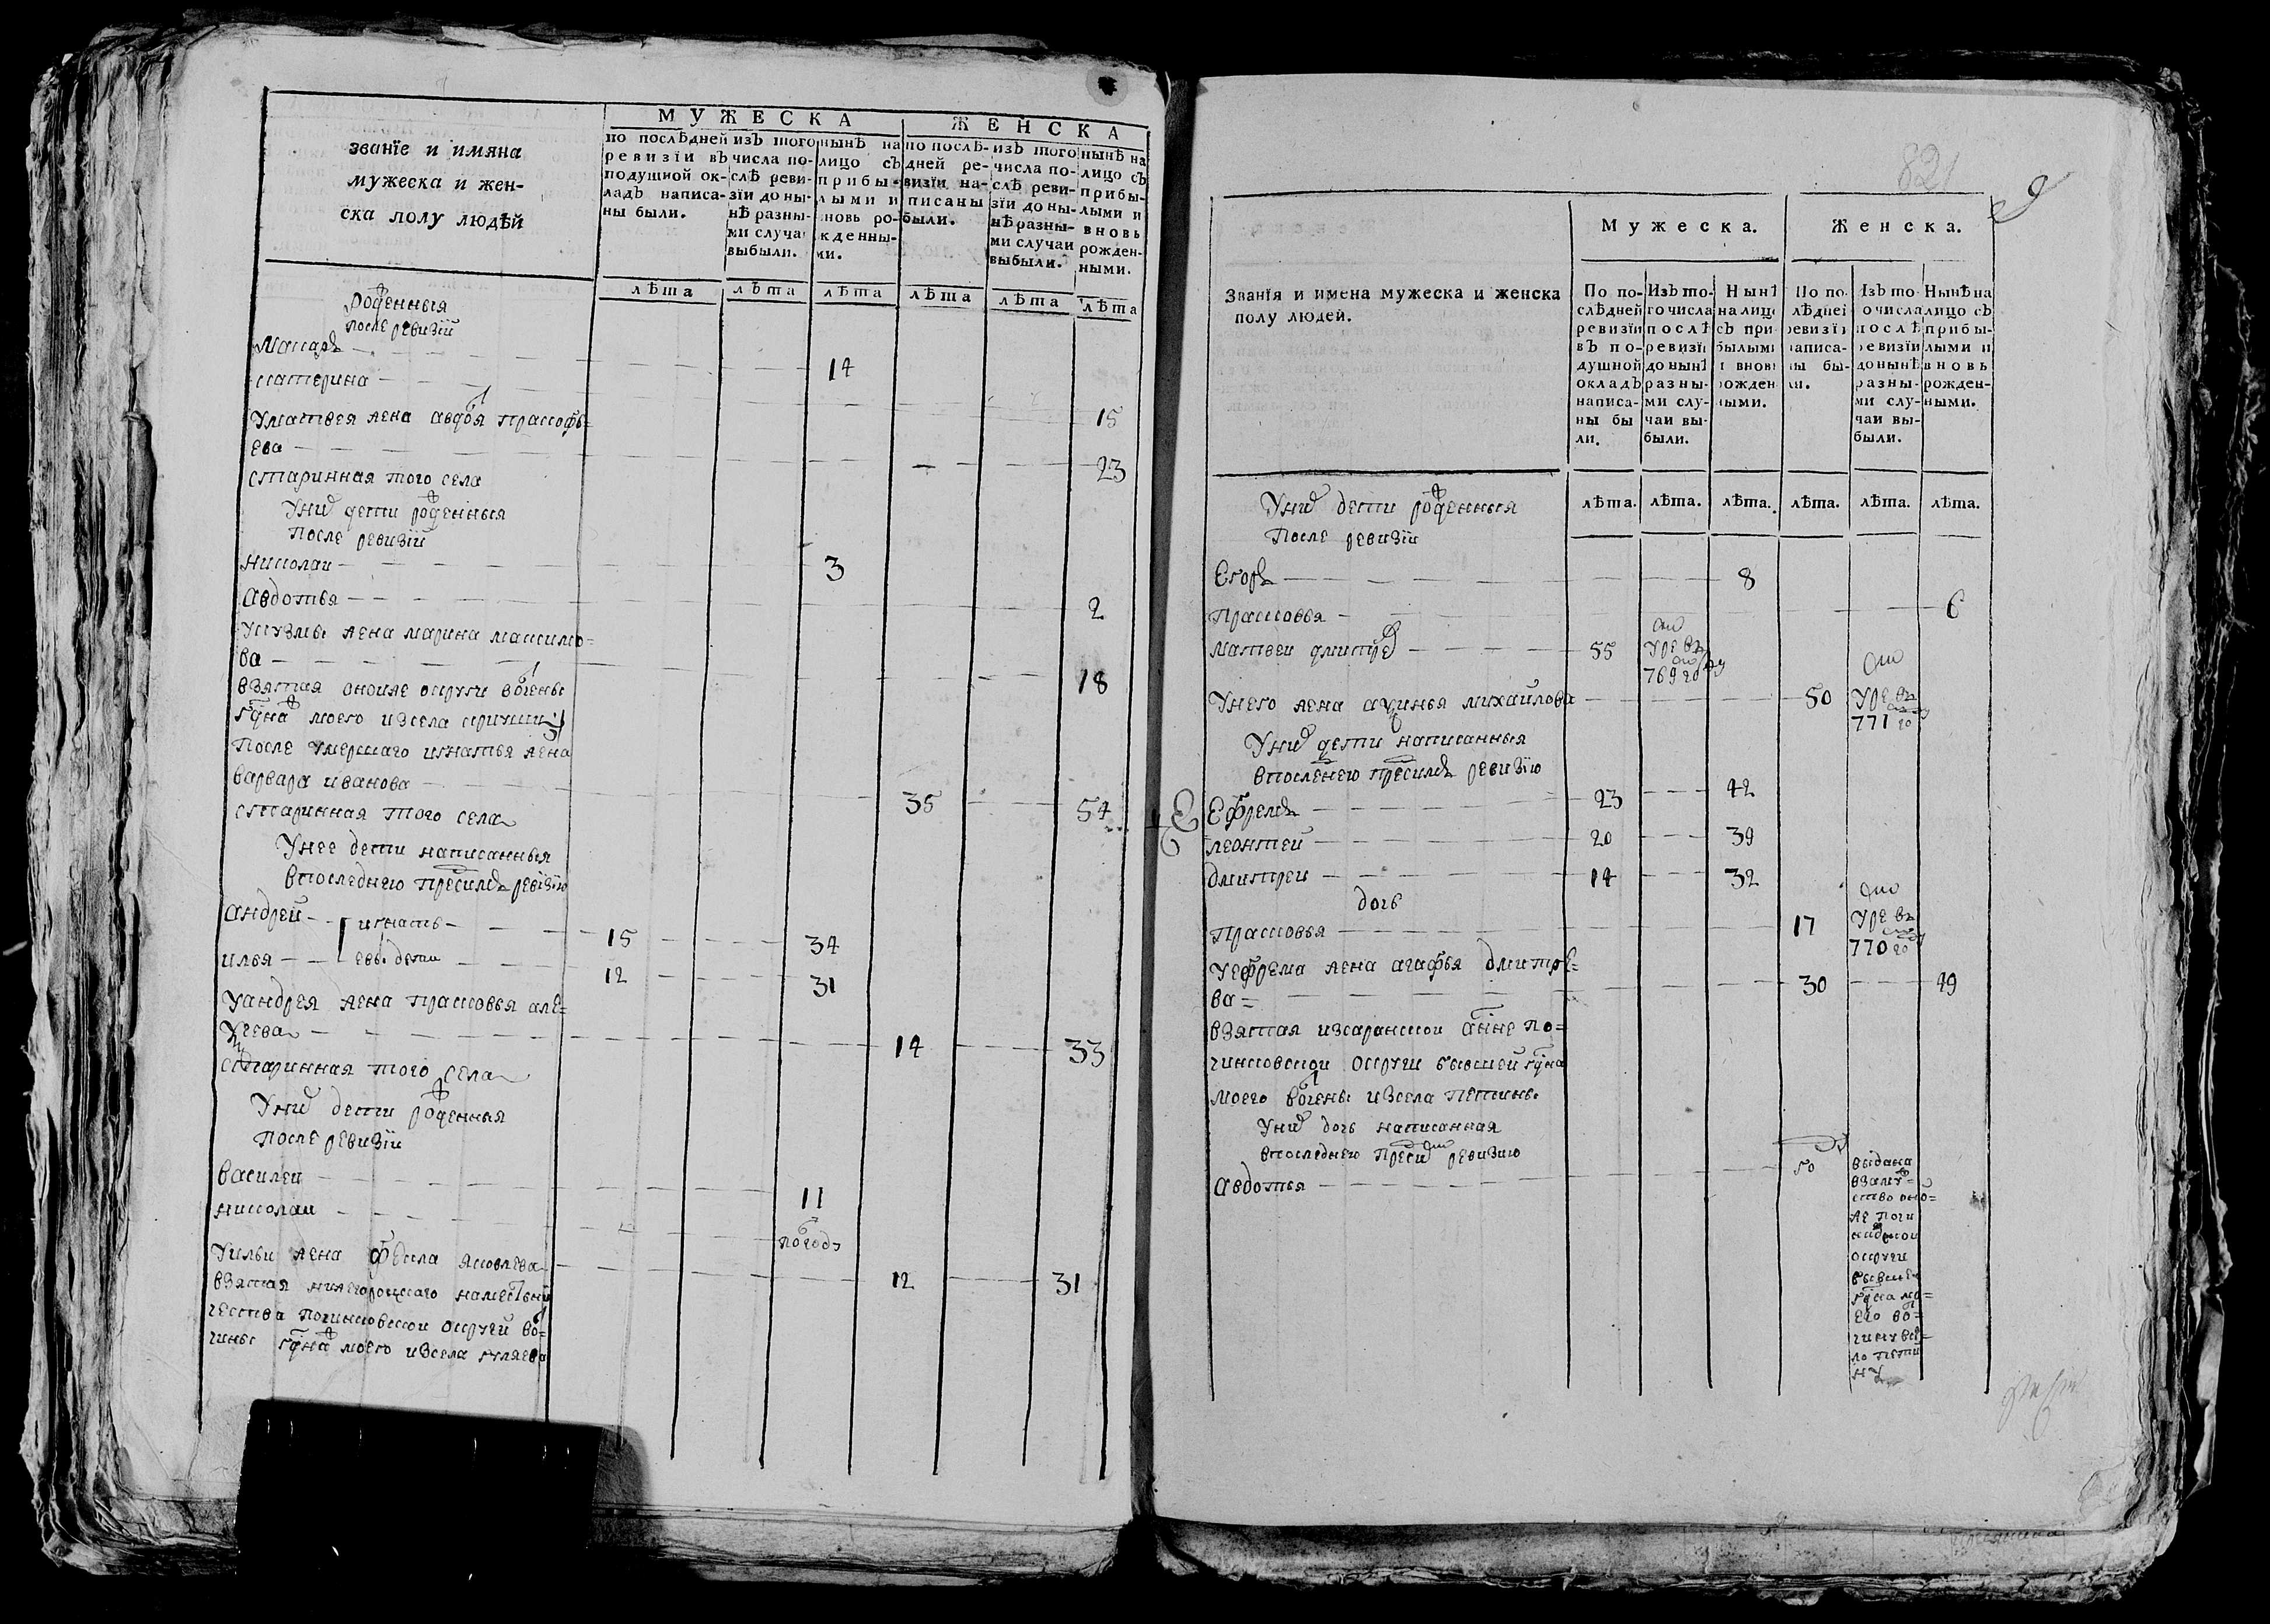 МУЖЕСКА
ЖЕНСКА
званїе и имяна
мужеска и жен-
ска полу людѣй
по послѣдней
ревизїи въ
подушной ок-
ладъ написа-
ны были.
изъ того
числа по-
слѣ реви-
зїи до ны-
нѣ разны-
ми случа
выбыли.
нынѣ на
лицо съ
прибы-
лыми и
вновь ро-
жденны-
ми.
по послѣ-
дней ре-
визїи на-
писаны
были.
изъ того
числа по-
слѣ реви-
зїи до ны-
нѣ разны-
ми случаи
выбыли.
нынѣ на
лицо съ
прибы-
лыми и
вновь
рожден-
ными.
лѣта лѣта лѣта лѣта лѣта лѣта
рожденныя
после ревизїи
Макаръ 14
катерина 15
Уматвея жена авдотья пракофь=
ева 23
старинная того села
Уних дети рожденныя
После ревизїи
николаи 3
авдотья 2
Укузмы жена марина максимо=
ва 18
взятая оноиже округи вотчены
гдна моего изсела
После умершаго игнатья жена
варвара иванова 35 54
старинная того села
Унее дети написанныя
впоследнею пресимъ ревизїю
андрей игнать- 15 34
илья евы дети 12 31
Уандрея жена прасковья але=
ѯеева 14 33
старинная того села
Уних дети рожденныя
После ревизїи
василеи 11
николаи погоду
Уильи жена фекла яковлева 12 31
взятая нижегороцкаго наместни
чества починковскои округи во=
чины гдна моего изсела
821
Мужеска.
Женска.
Званїя и имена мужеска и женска
полу людей.
По по-
слѣдней
ревизїи
въ по-
душной
окладъ
написа-
ны бы
ли.
Изъ то-
го числа
послѣ
ревизїи
до нынѣ
разны-
ми слу-
чаи вы-
были.
Нынѣ
на лицо
съ при
былыми
и вновь
рожден
ными.
По по-
слѣдней
ревизїи
написа-
ны бы-
ли.
Изъ то-
го числа
послѣ
ревизїи
до нынѣ
разны-
ми слу-
чаи вы-
были.
Нынѣ на
лицо съ
прибы-
лыми и
вновь
рожден-
ными.
лѣта. лѣта. лѣта. лѣта. лѣта. лѣта.
Уних дети рожденныя
После ревизїи
Егоръ 8
Прасковья 6
Матвеи дмитрев 55 769 го
Унего жена аксинья михаилова 50 771 го
Уних дети написанныя
впоследнею пресимъ ревизїю
Ефремъ 23 42
леонтеи 20 39
дмитреи 14 32
дочь
Прасковья 17 770 го
Уефрема жена агафья дмитре=
ва= 30 49
взятая изсаранскои а ныне по=
чинковскои округи бывшей гдна
моего вотчены изсела
Уних дочь написанная
впоследнею ревизию
авдотья 10
выдана
взаму=
ство оно=
же почи
нковскои
округи
бывшей
гдна мо=
его во=
чину се=
ло
ну